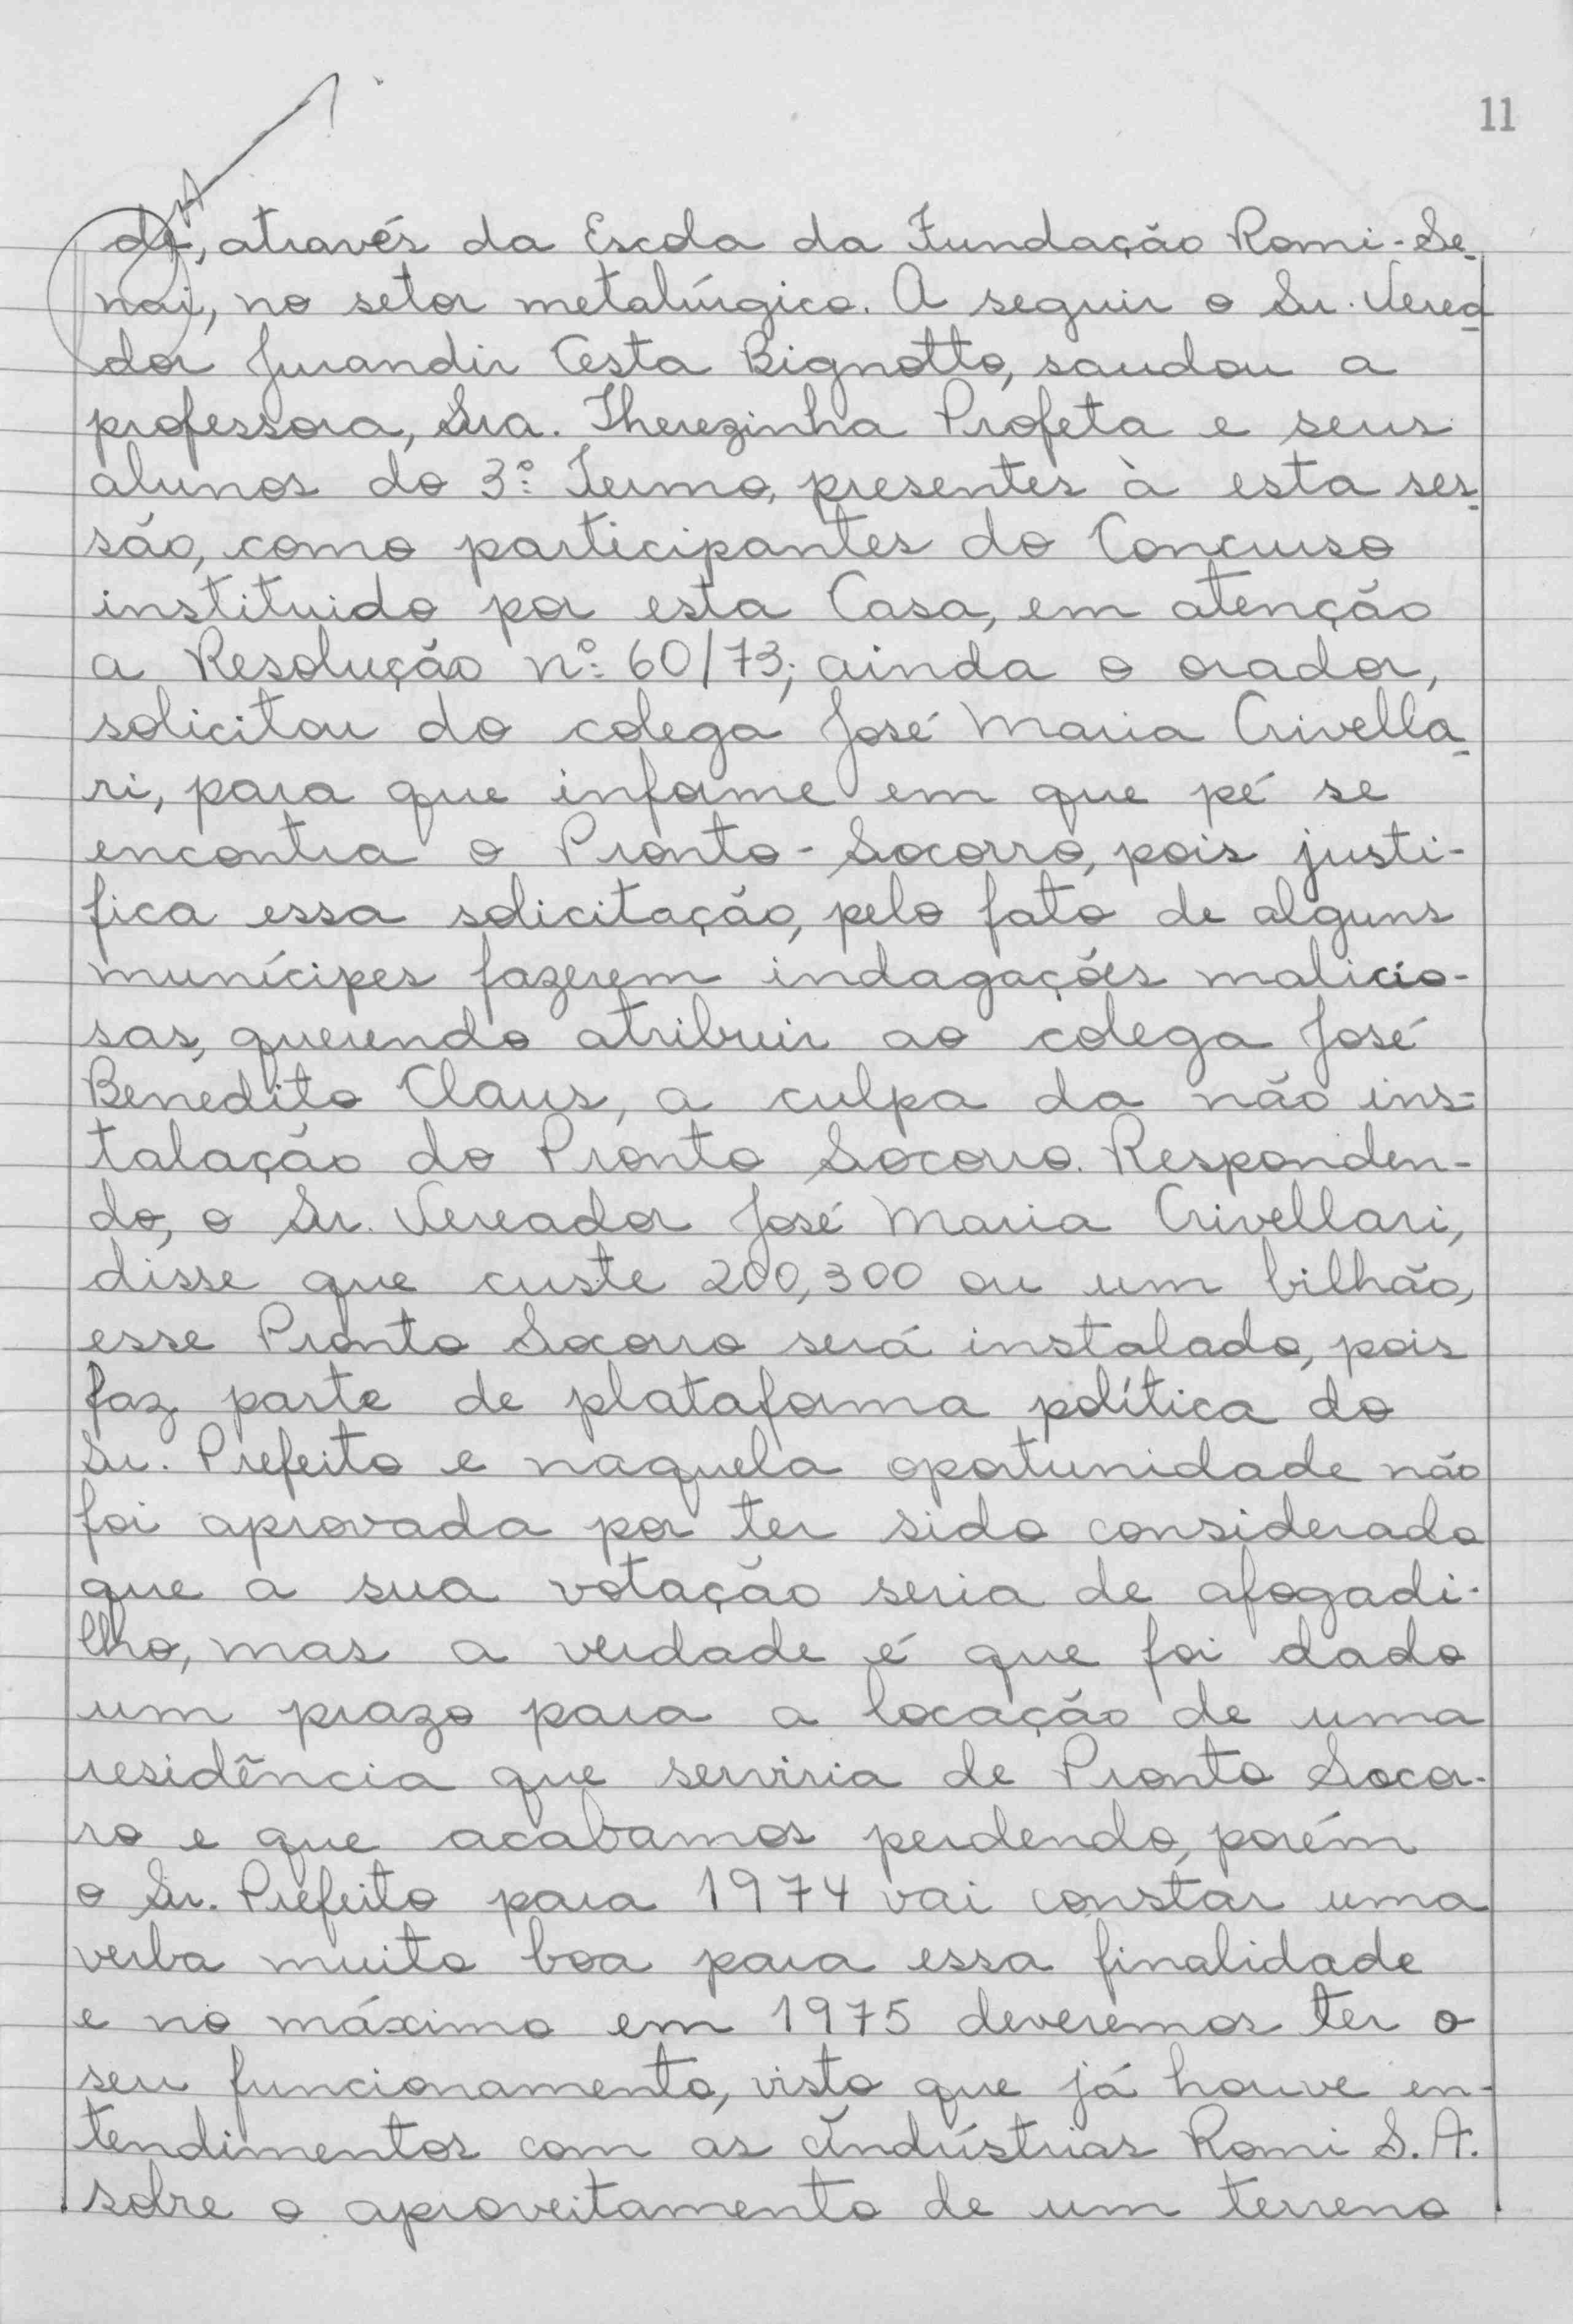 11
de, através da Escola da Fundação Romi-Se-
nai, no setor metalúrgico. A seguir o Sr. Verea-
dor Jurandir Cesta Bignotto, saudou a
professora, Sra. Therezinha Profeta e seus
alunos do 3º Termo, presentes à esta ses-
são, como participantes do Concurso
instituido por esta Casa, em atenção
a Resolução nº 60/73; ainda o orador,
solicitou do colega José Maria Crivella-
ri, para que informe em que pé se
encontra o Pronto-Socorro, pois justi-
fica essa solicitação, pelo fato de alguns
munícipes fazerem indagações malicio-
sas, querendo atribuir ao colega José
Benedito Claus, a culpa da não ins-
talação do Pronto Socorro. Responden-
do, o Sr. Vereador José Maria Crivellari,
disse que custe 200, 300 ou um bilhão,
esse Pronto Socorro será instalado, pois
faz parte de plataforma política do
Sr. Prefeito e naquela oportunidade não
foi aprovada por ter sido considerado
que a sua votação seria de afogadi-
lho, mas a verdade é que foi dado
um prazo para a locação de uma
residência que serviria de Pronto Socor-
ro e que acabamos perdendo, porém
o Sr. Prefeito para 1974 vai constar uma
verba muito boa para essa finalidade
e no máximo em 1975 deveremos ter o
seu funcionamento, visto que já houve en-
tendimentos com as Indústrias Romi S.A.
sobre o aproveitamento de um terreno